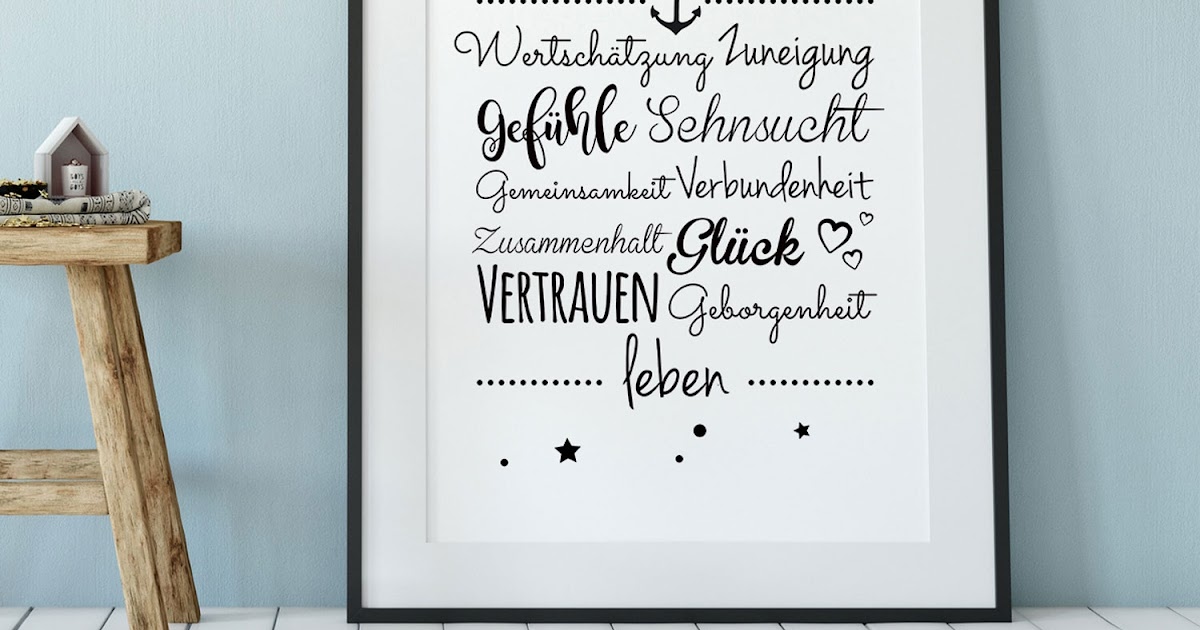 Wertschätzung Zuneigung
Gefühle Sehnsucht
Gemeinsamkeit Verbundenheit
Zusammenhalt Glück
VERTRAUEN Geborgenheit
leben